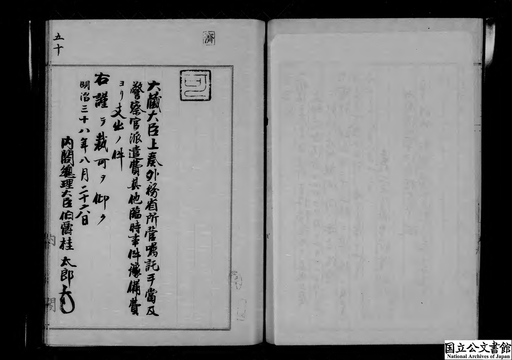 大蔵大臣上奏外務省所管嘱託手当及
警察官派遣費其他臨時事件豫備費
ヨリ支出ノ件
右謹テ裁可ヲ仰ク
明治三十八年八月二十六日
内閣總理大臣伯爵桂太郎
内閣
五十
国立公文書館
National Archives of Japan